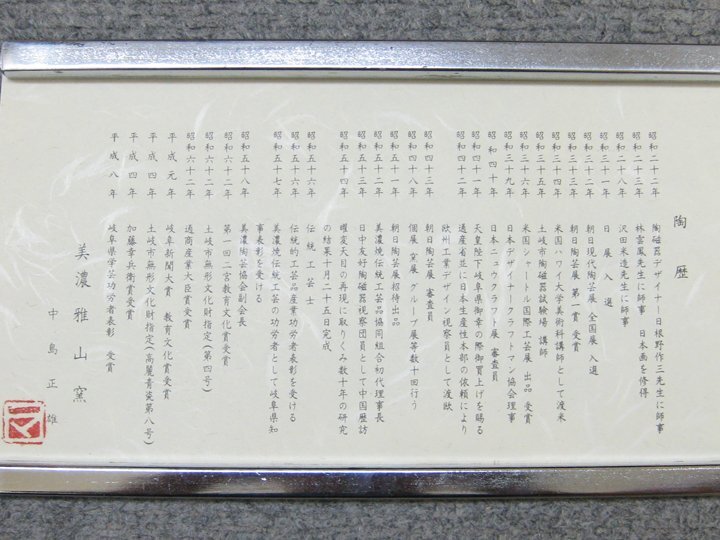 陶歴
昭和二十二年 陶磁器デザイナー日根野作三先生に師事
昭和二十三年 林雲鳳先生に師事 日本画を修得
昭和二十八年 沢田米造先生に師事
昭和三十一年 日展入選
昭和三十二年 朝日現代陶芸展 全国展 入選
昭和三十三年 朝日陶芸展 第一賞 受賞
昭和三十四年 米国ハワイ大学美術科講師として渡米
昭和三十五年 土岐市陶磁器試験場 講師
昭和三十六年 米国シャートル国際工芸展 出品 受賞
昭和三十九年 日本デザイナークラフトマン協会理事
昭和四十年 日本ニュウクラフト展 審査員
昭和四十一年 天皇陛下岐阜県御幸の際御買上げを賜る
昭和四十二年 通産省並に日本生産性本部の依頼により
欧州工業デザイン視察員として渡欧
昭和四十三年 朝日陶芸展 審査員
昭和四十八年 個展 窯展 グループ展等数十回行う
昭和五十一年 朝日陶芸展招待出品
昭和五十二年 美濃焼伝統工芸品協同組合初代理事長
昭和五十三年 日中友好陶磁器視察団員として中国歴訪
昭和五十四年 曜変天目の再現に取りくみ数十年の研究
の結果十月二十五日完成
昭和五十六年 伝統工芸士
昭和五十六年 伝統的工芸品産業功労者表彰を受ける
昭和五十七年 美濃焼伝統工芸の功労者として岐阜県知
事表彰を受ける
昭和五十八年 美濃陶芸協会副会長
昭和六十一年 第一回二字教育文化賞受賞
昭和六十二年 土岐市無形文化財指定(第四号)
昭和六十二年 通商産業大臣賞受賞
平成元年 岐阜新聞大賞 教育文化賞受賞
平成四年 土岐市無形文化財指定(高麗青瓷第八号)
平成四年 加藤幸兵衛賞受賞
平成八年 岐阜県学芸功労者表彰 受賞
美濃雅山窯
中島正雄